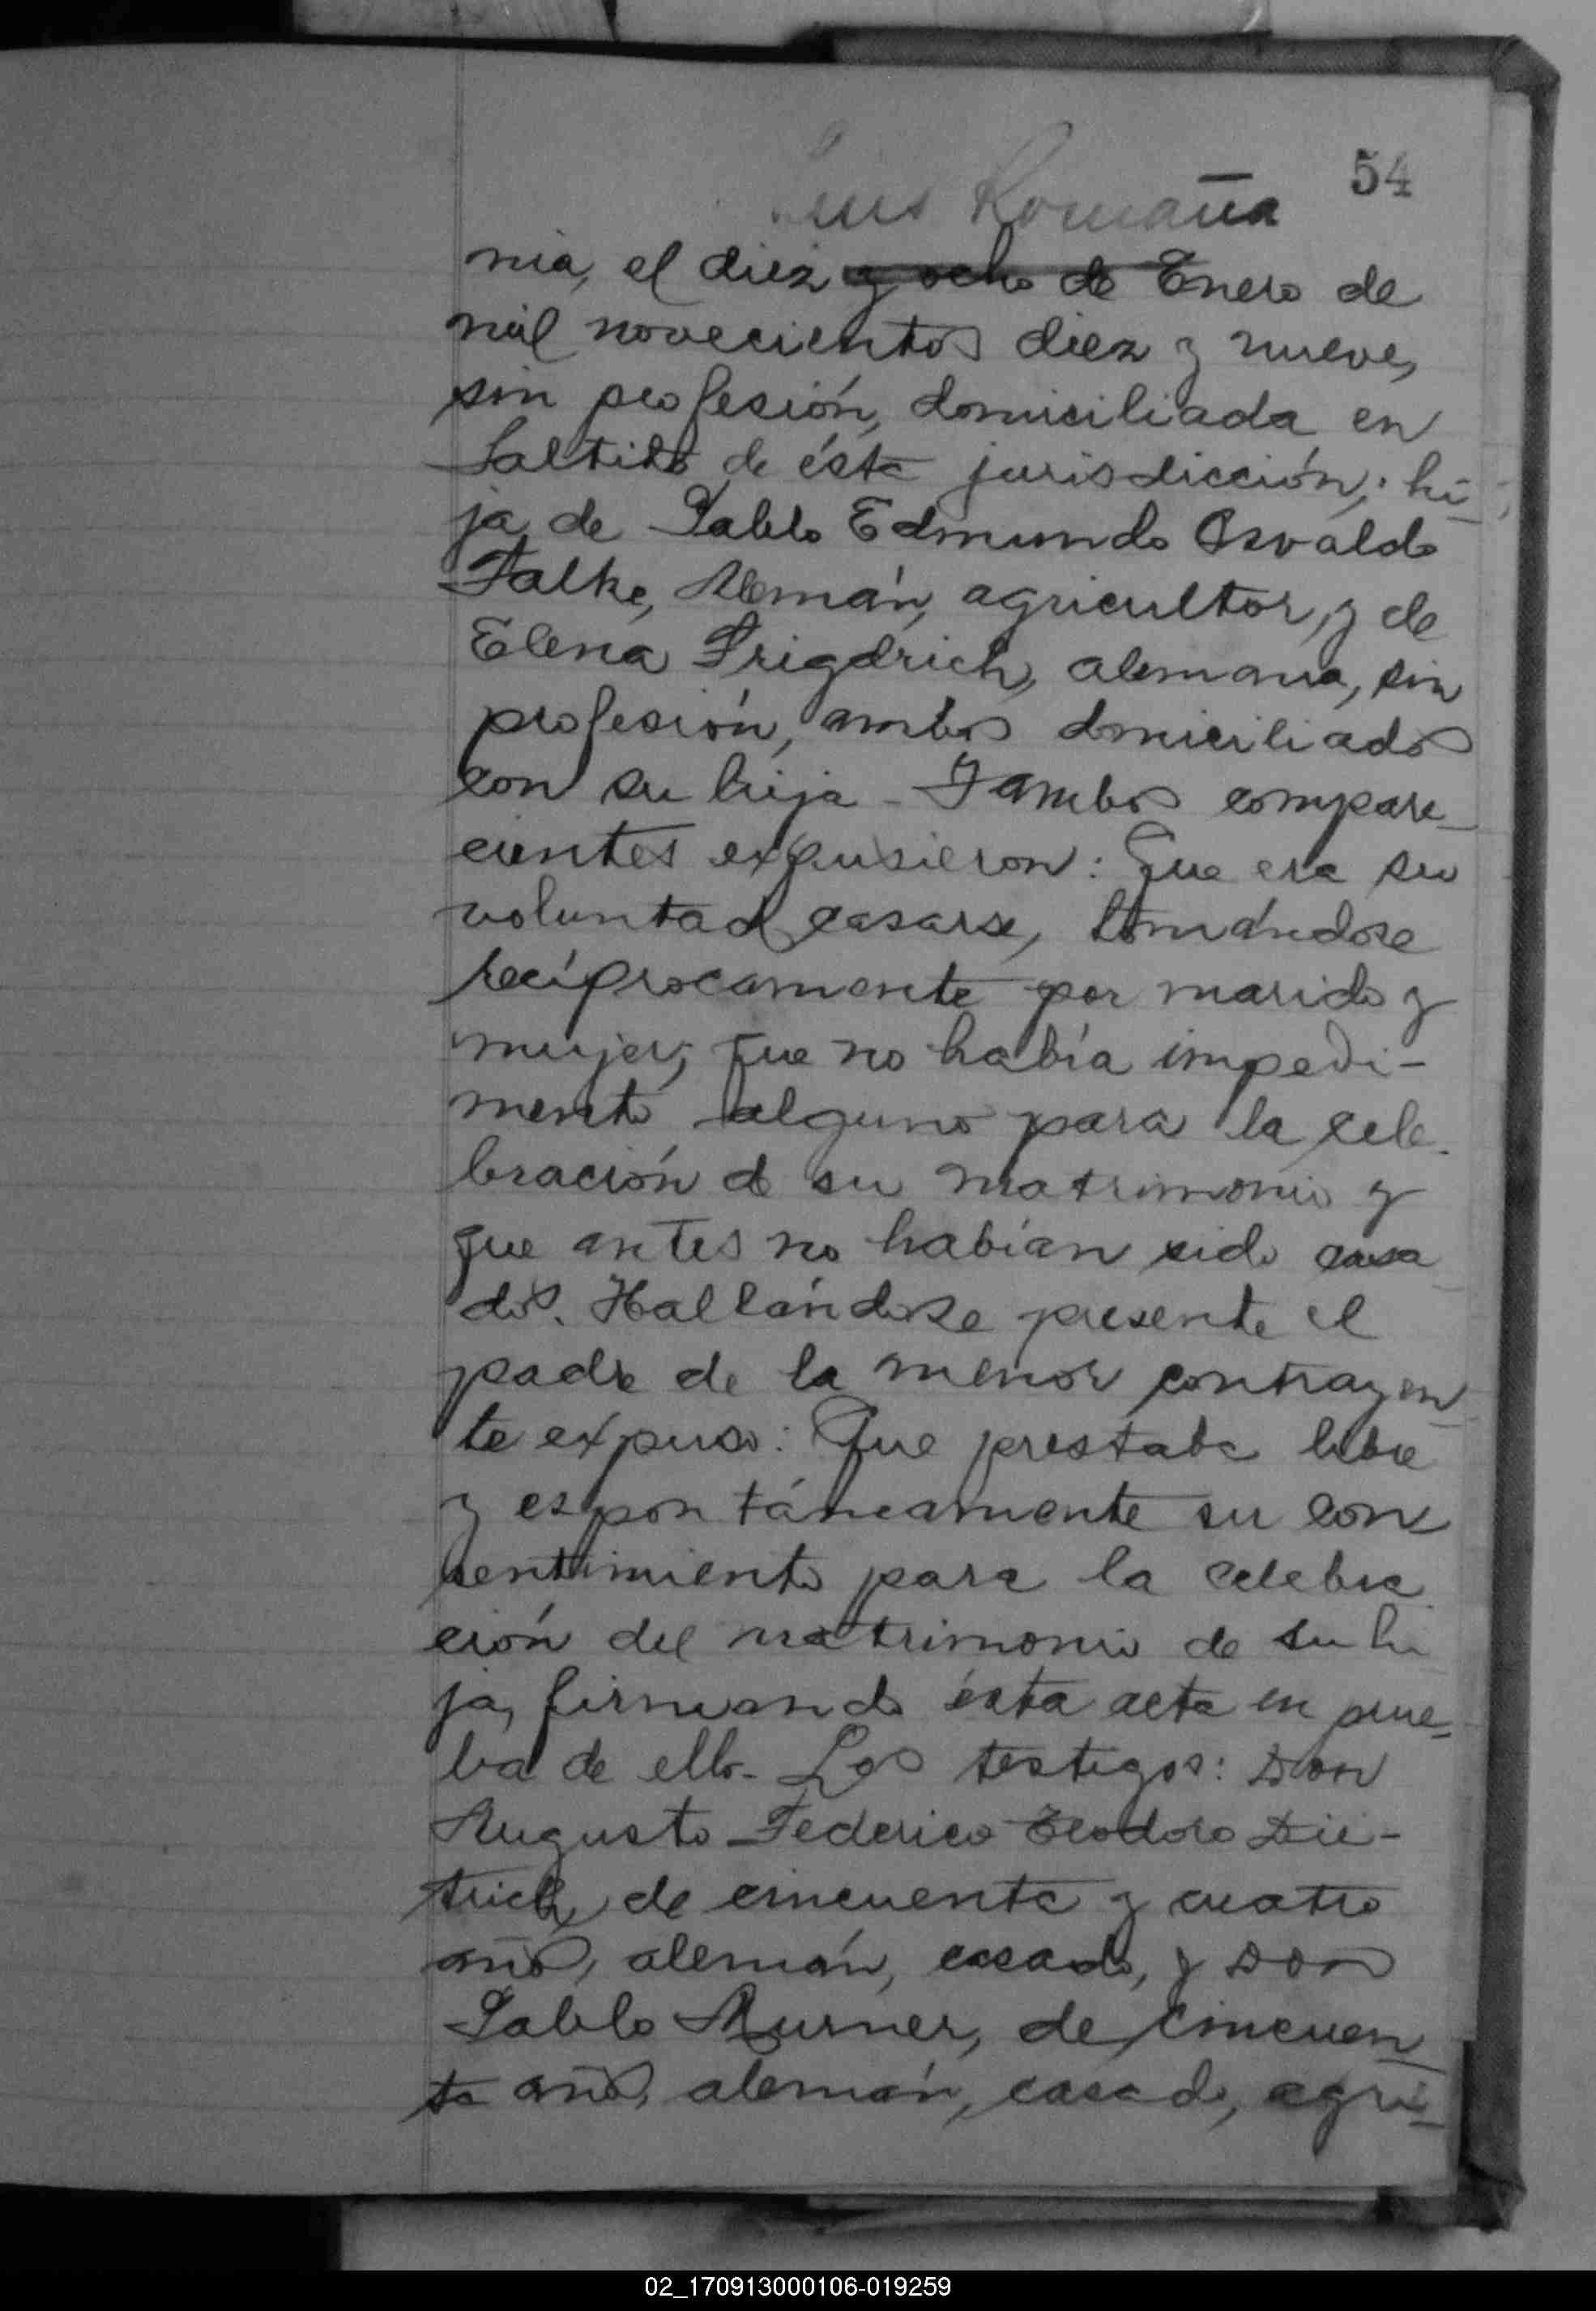 54
Luis Romaña
nia, el diez y ocho de Enero de
mil novecientos diez y nueve,
sin profesión, domiciliada en
Saltito de ésta jurisdicción; hi-
ja de Pablo Edmundo Osvaldo
Falke, Alemán, agricultor, y de
Elena Frigdrich, alemana, sin
profesión, ambos domiciliados
con su hija - Y ambos compare-
cientes expusieron: Que era su
voluntad casarse, tomándose
recíprocamente por marido y
mujer; que no había impedi-
mento alguno para la cele-
bración de su matrimonio y
que antes no habían sido casa
dos. Hallándose presente el
padre de la menor contrayen-
te expuso: Que prestaba libre
y espontáneamente su con
sentimiento para la celebra
ción del matrimonio de su hi
ja, firmando ésta acta en prue-
ba de ello. Los testigos: Don
Augusto Federico Teodoro Die-
trich, de cincuenta y cuatro
años, alemán, casado, y Don
Pablo Murner, de cincuen
ta años, alemán, casado, agri-
02_170913000106-019259